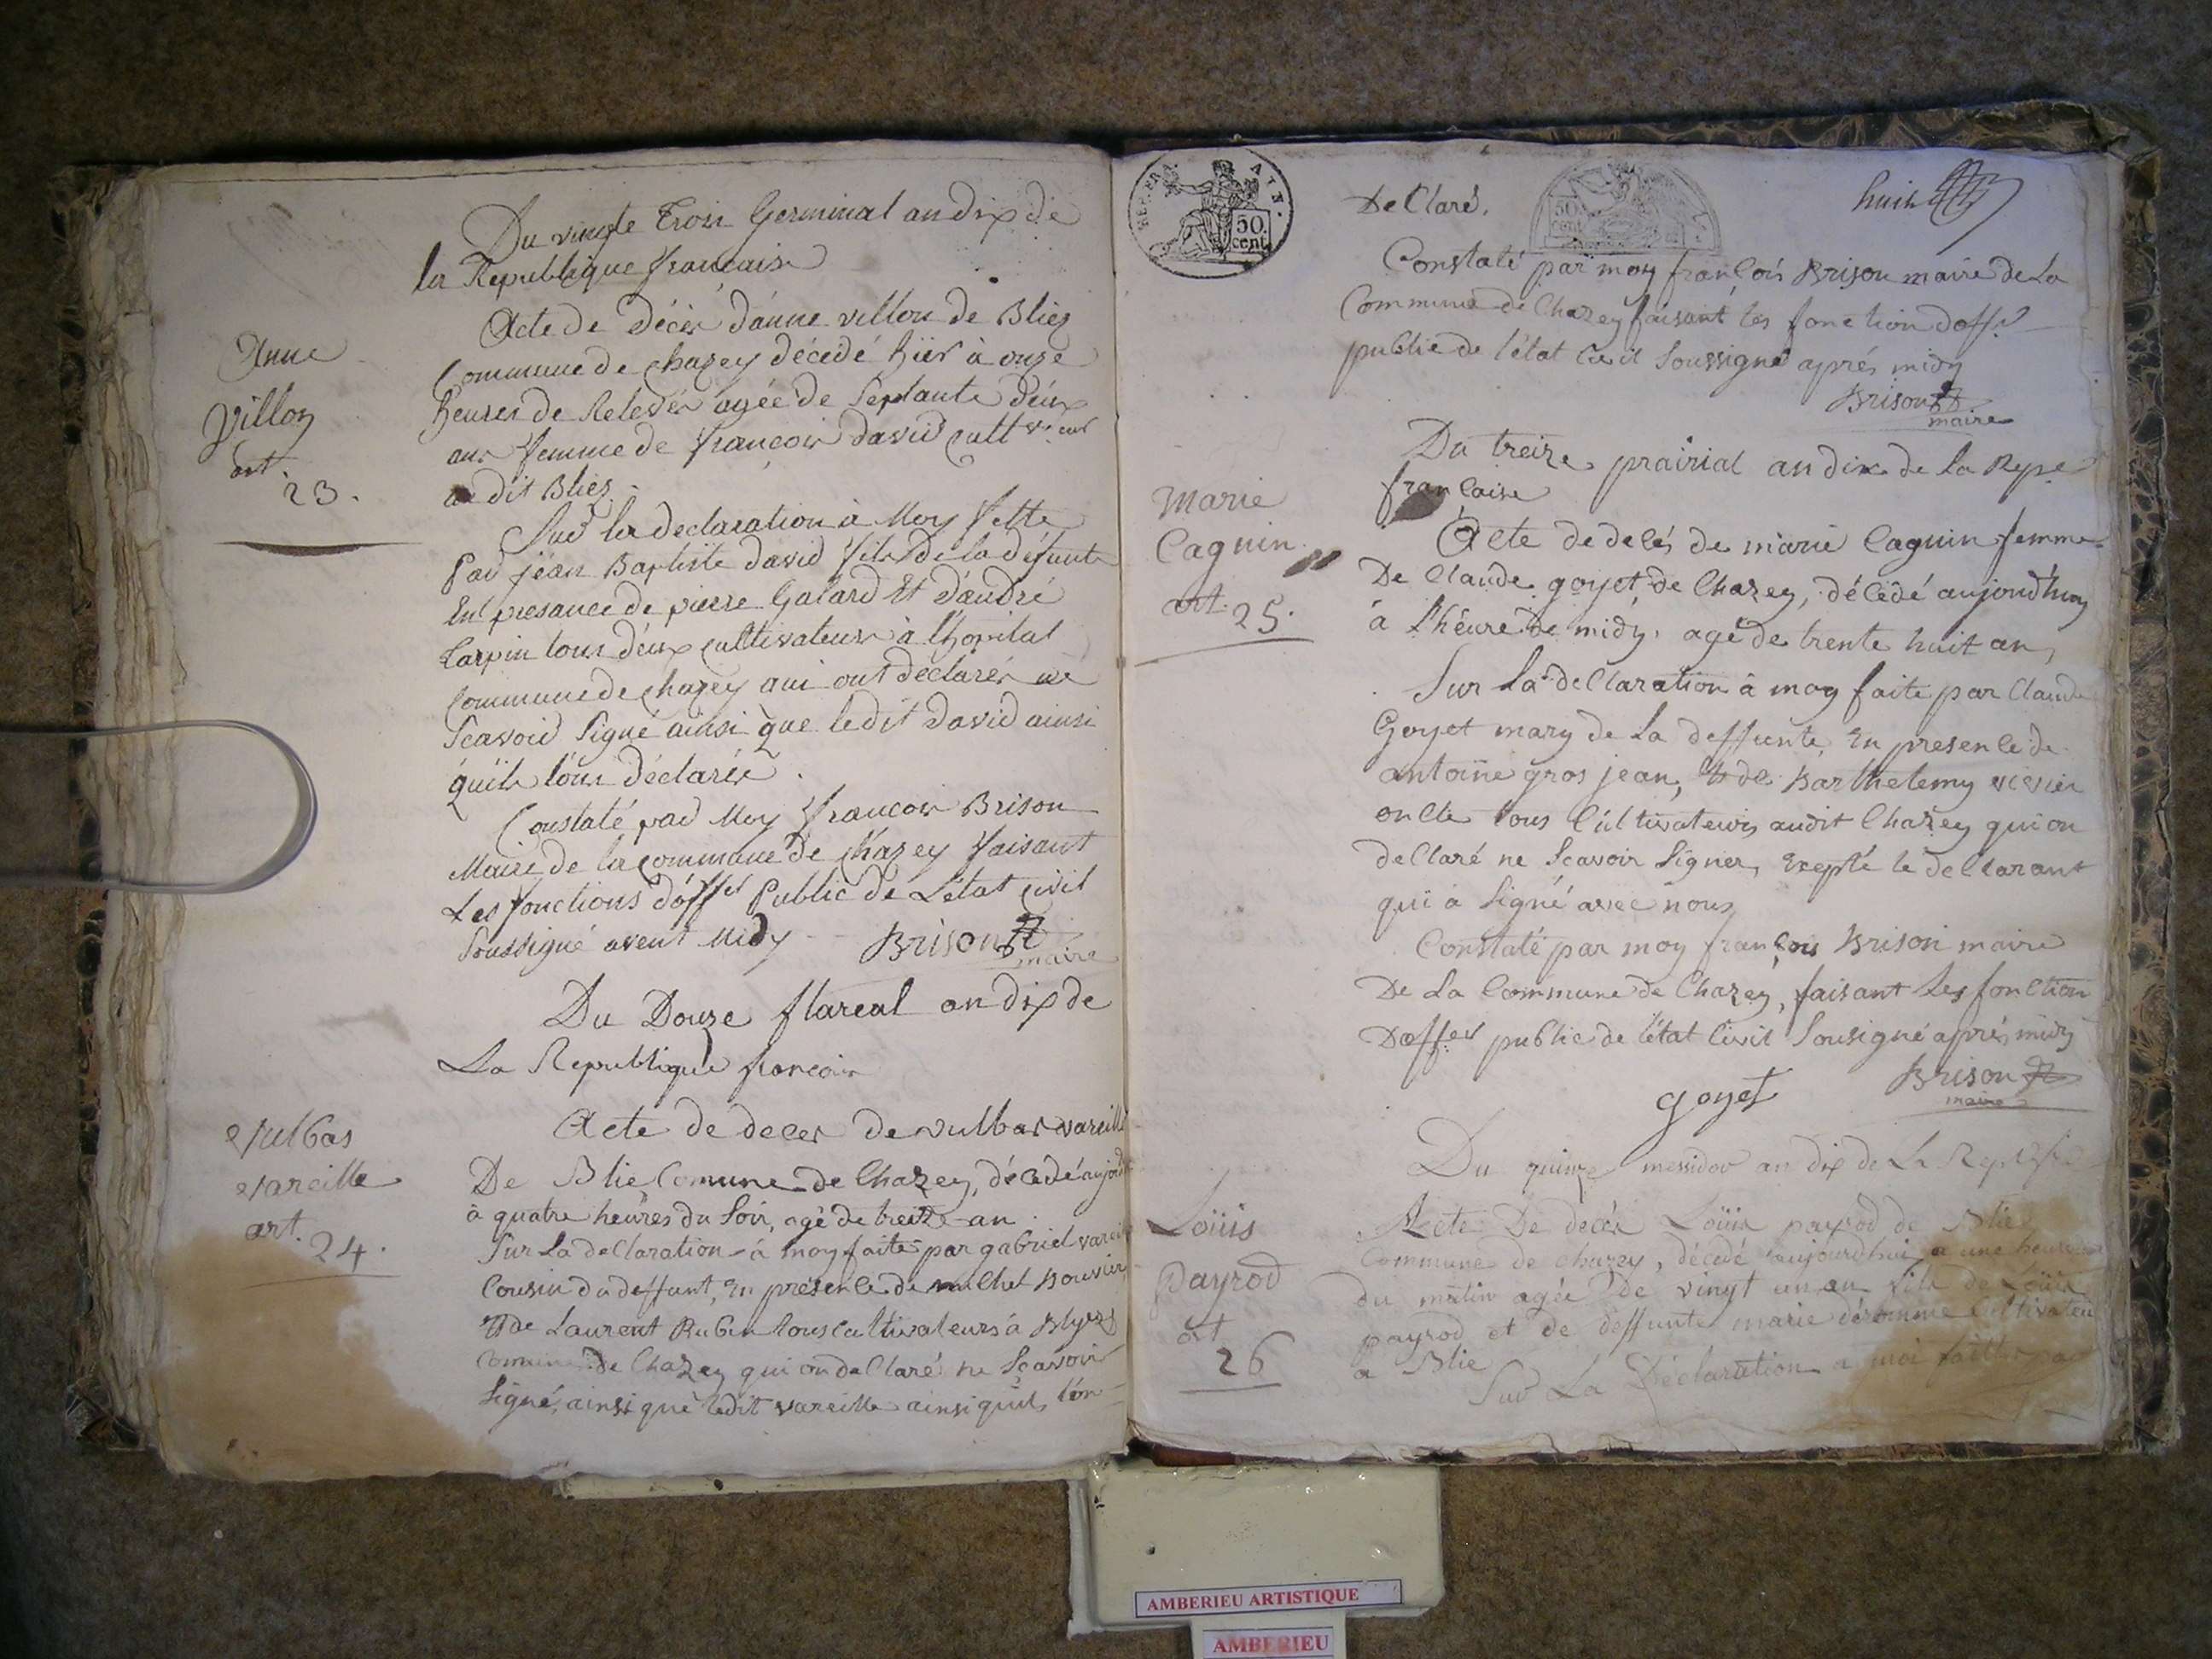 Du vingte Trois Germinal an dix de
la Republique francaise
Acte de décès d'anne villon de Bliez
Commune de chazey décédé hiër à onze
heures de Relevér agée de Septante deux
ans femme de françois david cultveur
au dit Bliez.
Anne
Villon
art.
23.
Sur la declaration à Moy fette
Par jéan Baptiste david fils de la défunte
En presance de pierre Galard Et d'andré
Larpin tous deux cultivateurs à l'hopital
Commune de chazey qui ont déclarés ne
Scavoir Signé ainsi que ledit david ainsi
qu'ils l'ons déclarée.
Constaté par Moy francois Brison
Maire de la Commune de chazey faisant
Les fonctions d'offer Public de L'état civil
Soussigné avent Midy Brison
maire
Du Douze flareal an dix de
La Republique francois
Acte de deces de vulbas vareille
De Blie Comune de Chazey, décédé aujord
à quatre heures du Soir, agé de treize an
Vulbas
vareille
art.
24.
Sur La declaration à moy faite par gabriel vareille
Cousin du deffunt, En présence de michel Bouvier
Et de Laurent Ruben tous cultivateurs à Blyez
Comune De Chazey qui on declaré ne Scavoir
Signé, ainsi que ledit vareille ainsi quils l'on
REP. FRA. AYN.
50
cent
50
cent
huit
Declaré.
Constaté par moy françois Brison maire de La
Commune de Chazey faisant les fonction d'offr
public de l'état Civil Soussigné aprés midy
Brison
maire
Du treize prairial an dix de La Repe
française
Acte de decés de marie Caguin femme
De Claude goyet de Chazey, décédé aujourd'huy
à l'héure de midy. agé de trente huit an,
Marie
Caguin
art. 25.
Sur La declaration à moy faite par Claude
Goyet mary de La deffunte, En presence de
antoine gros jean, Et de Barthelemy
oncle tous Cultivateurs audit Chazey qui on
declaré ne Scavoir Signer, Exepté le declarant
qui à Signé avec nous
Constaté par moy françois Brison maire
De La Commune de Chazey, faisant Les fonction
D'offer public de l'état Civil Sousigné aprés midy
goyet Brison
maire
Du quinze messidor an dix de La
Acte De decés Loüis payrod de Blie
Commune de chazey, décedé aujourdhui a une heure
du matin agée de vingt un an fils de Loüis
payrod et de deffunte marie Cultivateu
a Blie
Loüis
Payrod
art
26
Sur La Déclaration a moi faitte par
AMBERIEU ARTISTIQUE
AMBERIEU